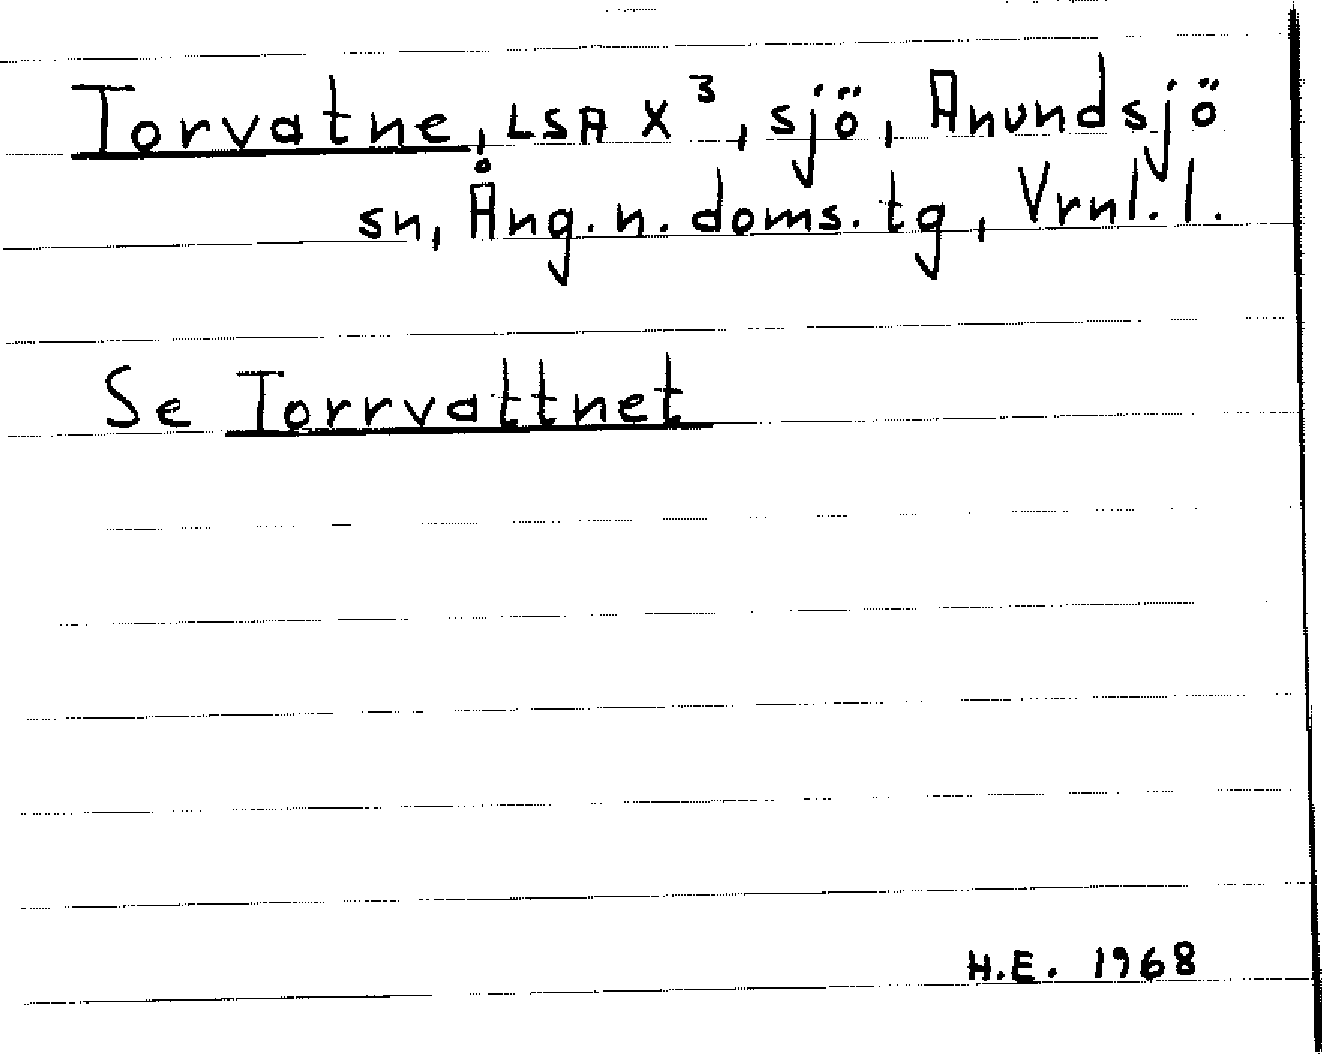 Torvatne, LSA X³, sjö, Anundsjö
sn, Ång. n. doms. tg, Vrnl. l.
Se Torrvattnet
H.E. 1968